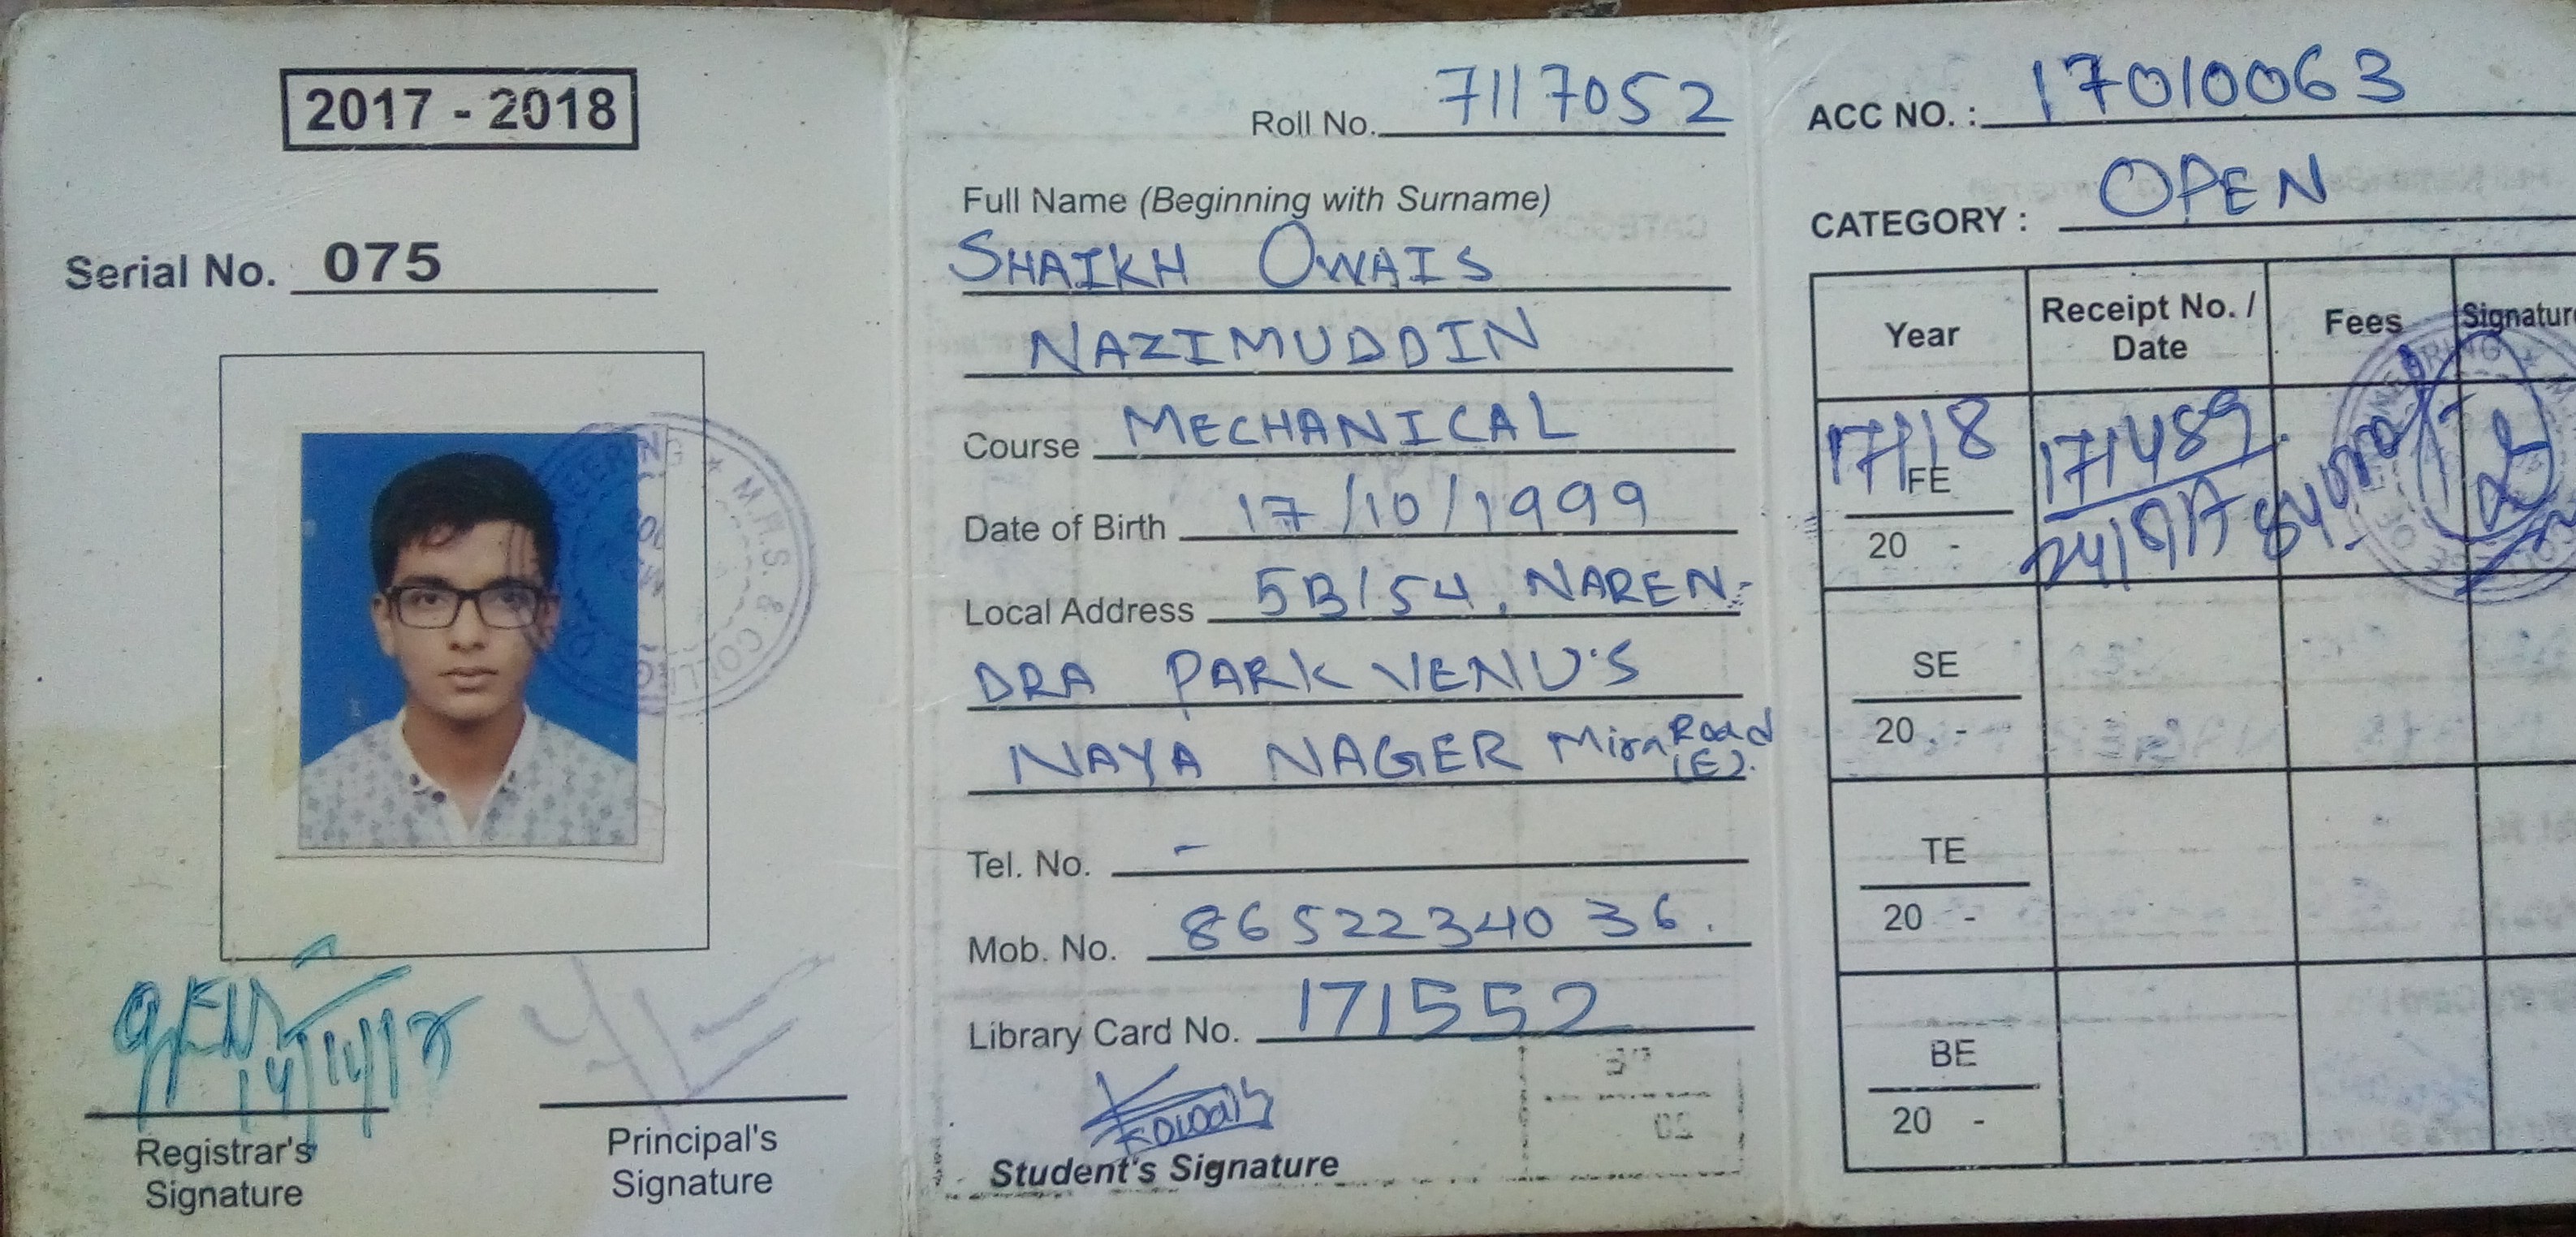 2017 - 2018
Serial No. 075
Registrar's
Signature
Principal's
Signature
Roll No. 7117052
Full Name (Beginning with Surname)
SHAIKH OWAIS
NAZIMUDDIN
Course MECHANICAL
Date of Birth 17/10/1999
Local Address 5B/54, NAREN-
DRA PARK VENU'S
NAYA NAGER Mira Road
(E).
Tel. No. -
Mob. No. 8652234036.
Library Card No. 171552
Student's Signature
ACC NO. : 17010063
CATEGORY : OPEN
Year Receipt No. / Date Fees Signature
17/18 171489
FE
20 -
SE
20 -
TE
20 -
BE
20 -